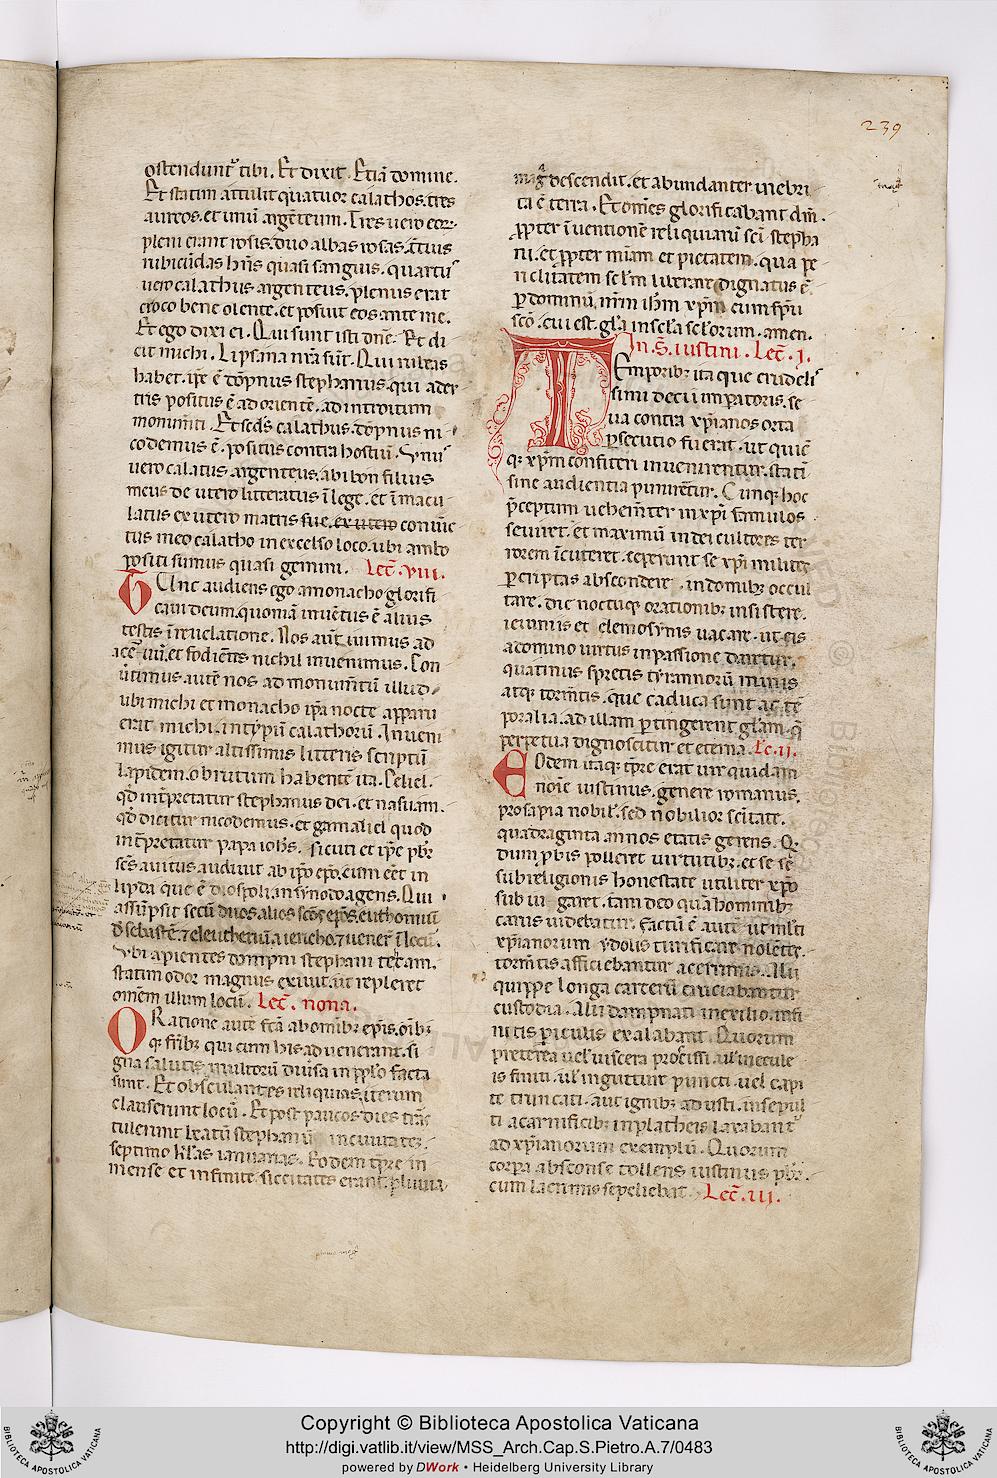 239
ostendunt᷑ tibi. Et dixit. Etiā domine.
Et statim attulit quatuor calathos. tres
aureos. et unū argēteum. Tres uero eoꝝ
pleni erant rosis. duo albas rosas. alter
rubicūdas hn̄s quasi sanguis. quartus
uero calathus argenteus. plenus erat
croco bene olente. et posuit eos ante me.
Et ego dixi ei. Qui sunt isti dn̄e. Et di
cit michi. Lipsana nr̄a sūt. Qui rubras
habet. ip̄e ē dōpnus stephanus. qui a dex
tris positus ē ad orientē. ad introitum
monumēti. Et sc̄ds calathus. dōpnus ni
codemus ē. positus contra hostiū. Vnus
uero calatus. argenteus. abibon filius
meus de utero litteratus ī lege. et īmacu
latus ex utero matris sue. ex utero coniūc
tus meo calatho in excelso loco. ubi ambo
positi sumus quasi gemini. Lec̄. viii.
Tunc audiens ego a monacho glorifi
caui deum. quoniam inuētus ē alius
testis ī reuelatione. Nos aūt iuimus ad
aceruū. et fodiētes nichil inuenimus. Con
uertimus autē nos ad monumētū illud.
ubi michi et monacho ip̄a nocte apparu
erit michi. in typū calathorū. Inueni
mus igitur altissimis litteris scriptū
lapidem. obrutum habentē ita. Celiel.
qd̄ int̄pretatur stephanus dei. et nasuam.
qd̄ dicitur nicodemus. et gamaliel quod
int̄pretatur papa ioh̄s. sicuti et ip̄e pb̄r
sc̄s auitus audiuit ab ip̄o ep̄o. cum eēt in
lipda que ē diospoli. in synodo agens. Qui
assūpsit secū duos alios sc̄os ep̄os. euthomiū
d̄ sebastē. ⁊ eleutheriū. a iericho. ⁊ uener̄ ī locū.
Vbi apientes dompni stephani tecam.
statim odor magnus exiuit. ut repleret
omēm illum locū. Lec̄. nona.
Oratione autē fc̄a ab omībꝫ ep̄is. oīb̄
qꝫ fr̄ibꝫ qui cum his aduenerant. si
gna salutis multorū diu̾sa in pp̄lo facta
sunt. Et obsculantes reliquias. iterum
clauserunt locū. Et post paucos dies trās
tulerunt beatū stephanū in ciuitatē.
septimo kl̄as ianuarias. Eodem tp̄re in
mense et infinite siccitates erant. pluuia
mag̾ descendit. et abundanter inebri
ta ē terra. Et om̄es glorificabant dm̄.
ꝓpter īuentionē reliquiarū sc̄i stepha
ni. et ꝓpter mīam et pietatem. qua pe
riclitātem sclm̄ liberare dignatus ē.
ꝑ dominū. nr̄m ih̄m xp̄m cum sp̄u
sc̄o. cui est gl̄a in scl̄a scl̄orum. amen.
In. S̄. iustini. Lec̄. I.
Temporibꝫ itaque crudelis
simi decii imꝑatoris. se
ua contra xp̄ianos orta
ꝑsecutio fuerat. ut quicū
qꝫ xp̄m confiteri inuenirentur. statī
sine audientia punirētur. Cunqꝫ hoc
p̄ceptum uehemēter in xp̄i famulos
seuiret. et maximū in dei cultores ter
rorem īcuteret. ceperunt se xp̄i milites
ꝑ criptas abscondere. in domibꝫ occul
tare. die noctuqꝫ orationibꝫ insistere.
ieiuniis et elemosynis uacare. ut eis
a domino uirtus in passione daretur.
quatinus spretis tyrannorū minis
atqꝫ tormētis. que caduca sunt ac tē
poralia. ad illam ꝑtingerent gl̄am. q̄
perpetua dignoscitur et eterna. Le. ii.
Eodem itaqꝫ tp̄re erat uir quidam
noīe iustinus. genere romanus.
prosapia nobil̾. sed nobilior sc̄itate.
quadraginta annos etatis gerens. Q.
dum ꝓbis polleret uirtutibꝫ. et se sē
sub religionis honestate utiliter xp̄o
sub iugaret. tam deo quā hominibꝫ
carus uidebatur. Factū ē autē ut ml̄ti
xp̄ianorum ydolis turificare nolētes.
tormētis afficiebantur acerrimis. Alii
quippe longa carcerū cruciabantur
custodia. Alii dampnati in exilio. infi
nitis ꝑiculis exalabant. Quorum
preterea uel uiscera ꝓcissi. ul̾ in ecule
is finiti. ul̾ in gutture puncti. uel capi
te truncati. aut ignibꝫ adusti. insepul
ti a carnificibꝫ in platheis laxabant᷑
ad xp̄ianorum exemplū. Quorum
corpa absconse tollens iustinus pb̄r.
cum lacrimis sepeliebat. Lec̄. iii.
Copyright © Biblioteca Apostolica Vaticana
http://digi.vatlib.it/view/MSS_Arch.Cap.S.Pietro.A.7/0483
powered by DWork • Heidelberg University Library
BIBLIOTECA APOSTOLICA VATICANA
BIBLIOTECA APOSTOLICA VATICANA